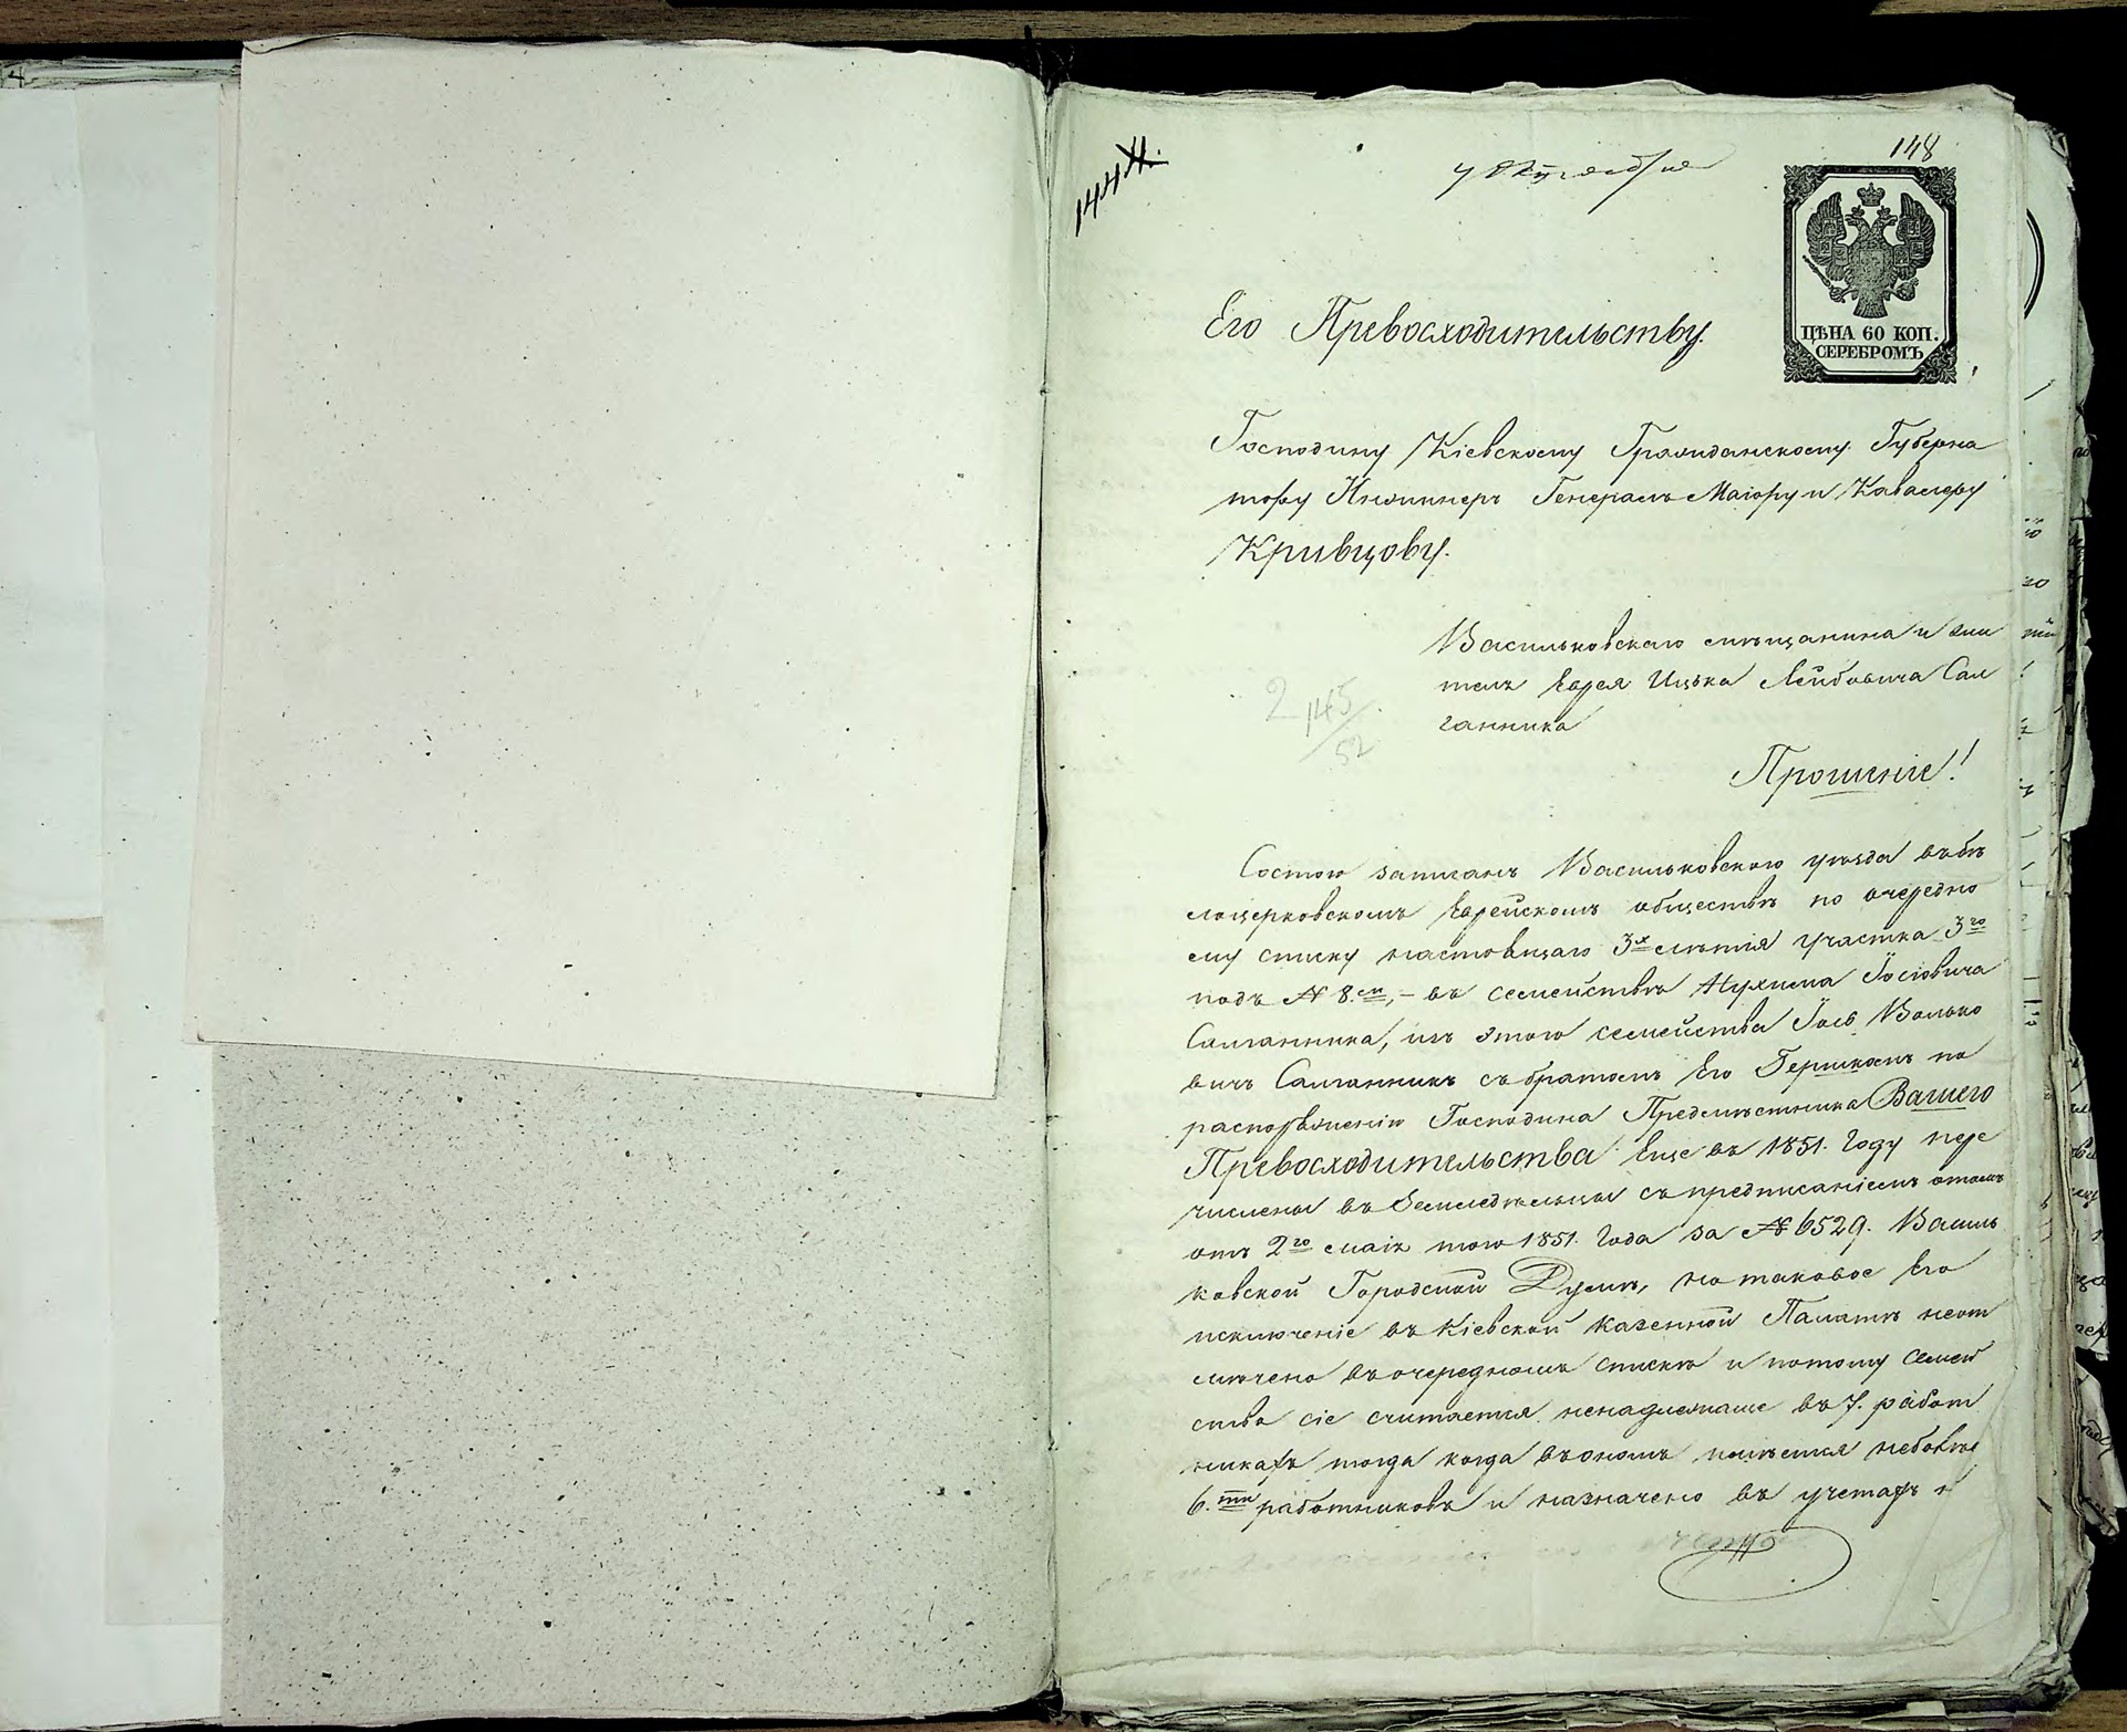 4
144
148
7 Октября
ЦѢНА 60 КОП.
СЕРЕБРОМЪ
Его Превосходительству.
Господину Кіевскому Гражданскому Губерна
тору Инжинеръ Генералъ Маіору и Кавалеру
Кривцову.
Васильковскаго мѣщанина и жи
теля Еврея Ицька Лейбовича Сал
ганника
2 145
52
Прошеніе!
Состою записанъ Васильковскаго уѣзда въ бѣ
лоцерковскомъ Еврейскомъ обществѣ по очередно
му списку настовщаго 3х лѣтія участка 3го
подъ № 8.мъ,- въ семействѣ Нухима Іосіовича
Салганника, изъ этого семейства Іось Волько
вичъ Салганникъ съ братомъ Его Гершкомъ по
распоряженію Господина Предмѣстника Вашего
Превосходительства Еще въ 1851. Году пере
числены въ Земледѣльцы съ предписаніемъ отомъ
отъ 2го маія того 1851. Года за № 6529. Василь
ковской Городской Думѣ, но таковое Его
исключеніе въ Кіевской Казенной Палатѣ неот
мѣчено въ очередномъ спискѣ и потому семей
ство сіе считается ненадлежаще въ 7. работ
никахъ тогда когда въ ономъ имѣется неболѣе
6.ти работниковъ и назначено въ учетахъ